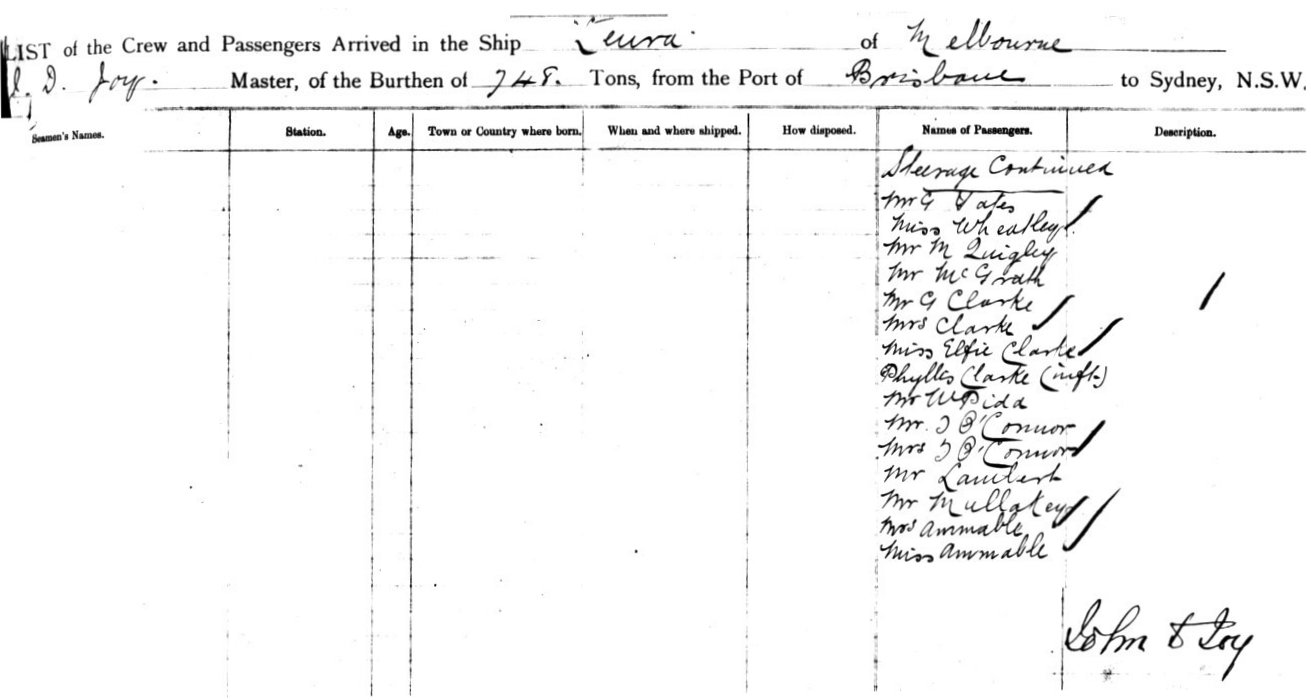 LIST of the Crew and Passengers Arrived in the Ship Leura of Melbourne
J. D. Joy. Master, of the Burthen of 748. Tons, from the Port of Brisbane to Sydney, N.S.W.
Seamen's Names. Station. Age. Town or Country where born. When and where shipped. How disposed. Names of Passengers. Description.
Steerage Continued
Mr G Yates
Miss Wheatley
Mr M Quigley
Mr McGrath
Mr G Clarke
Mrs Clarke
Miss Elfie Clarke
Phyllis Clarke (inft.)
Mr W Pidd
Mr. J O'Connor
Mrs J O'Connor
Mr Lambert
Mr Mullakey
Mrs Ammable
Miss Ammable
John D Joy